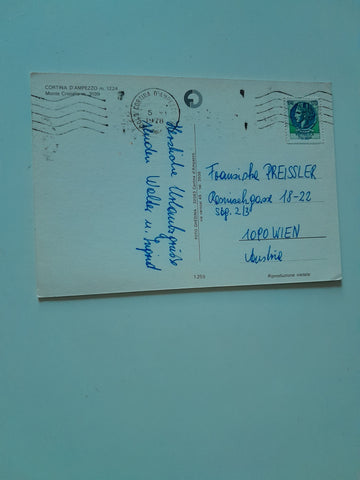 CORTINA D'AMPEZZO m. 1224
Monte Cristallo m. 3199
CORTINA D'AMPEZZO
5
1978
Herzliche Urlaubsgrüße
senden Walter u. Ingrid
Franziska PREISSLER
18-22
Stg. 2/3
1090 WIEN
Austria
1259
Riproduzione vietata